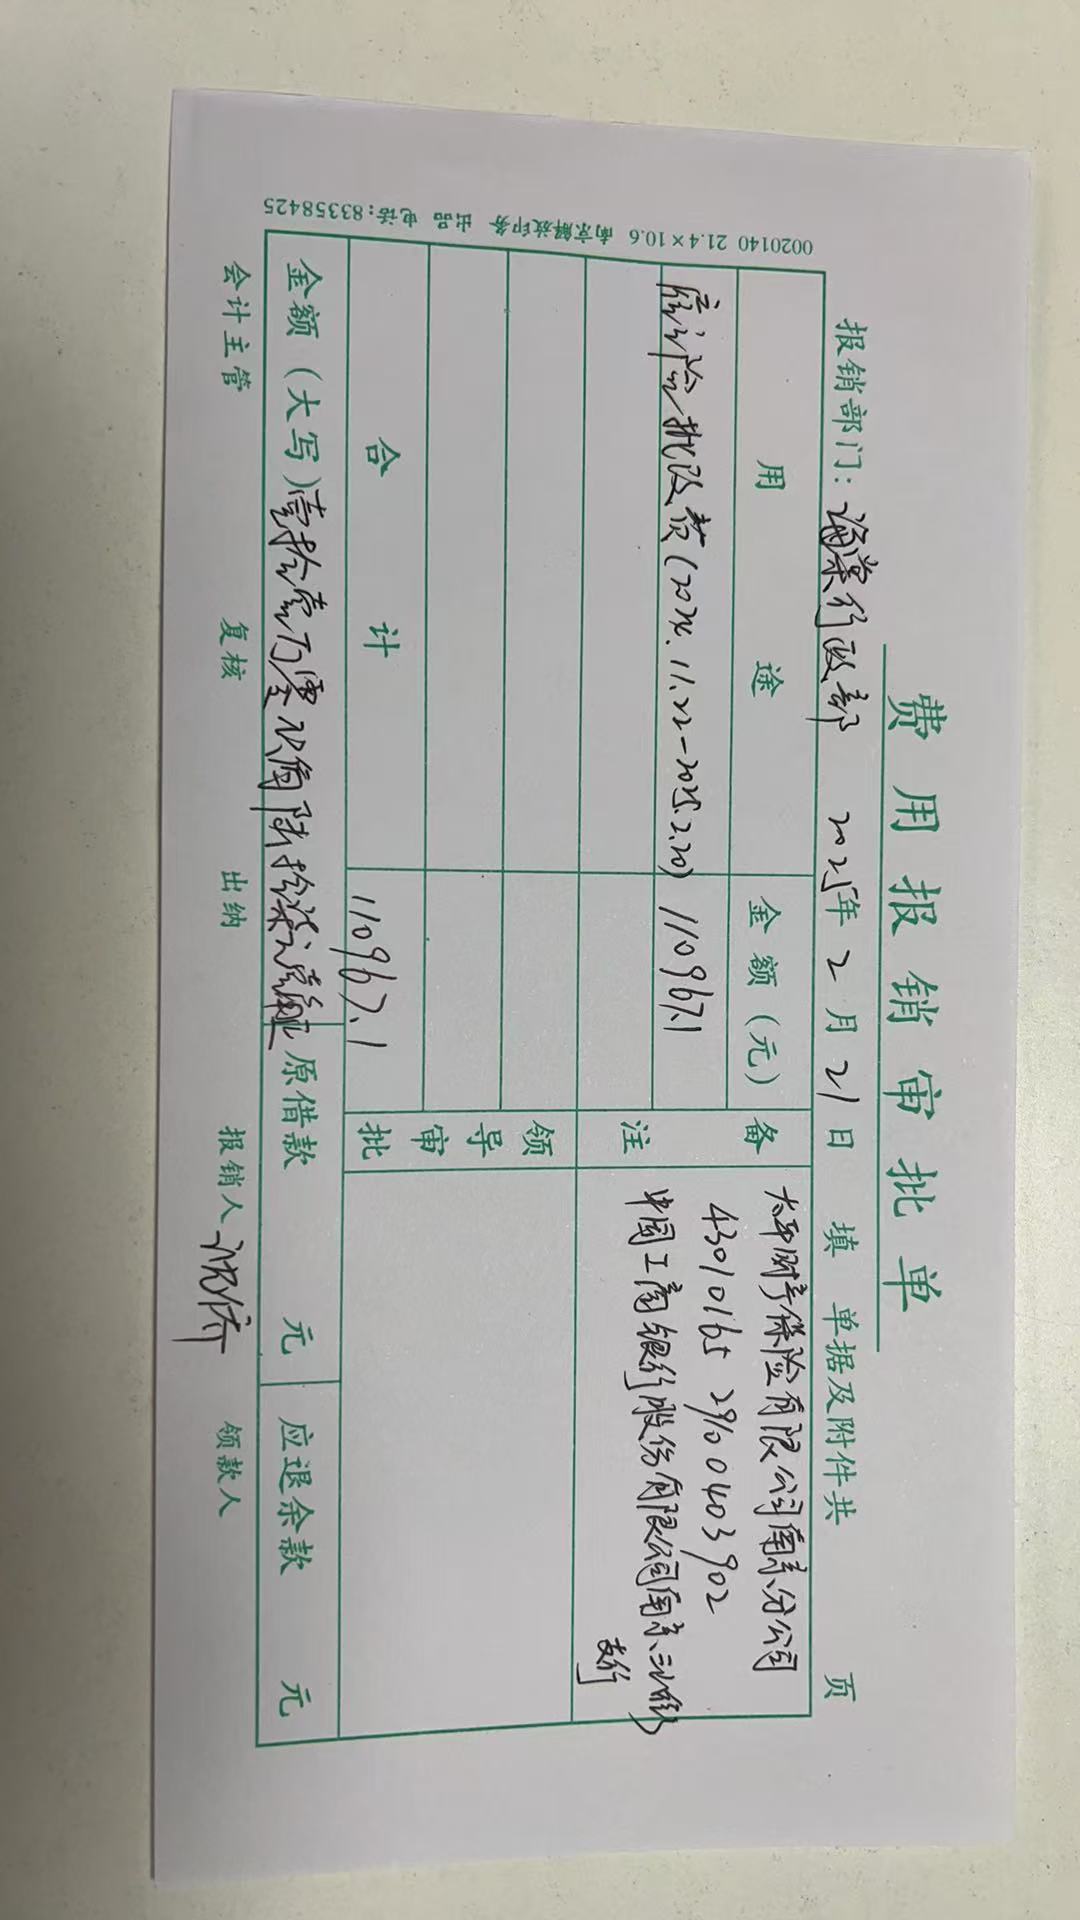 费用报销审批单
报销部门: 瀚棠行政部 2025年2月21日 填 单据及附件共 页
用途 金额(元) 备注
雇主险批改费(2024.11.22-2025.2.20) 110967.1
太平财产保险有限公司南京分公司
4301016529100403902
中国工商银行股份有限公司南京三山街
支行
领导审批
合计 110967.1
金额(大写)壹拾壹万零玖佰陆拾柒元壹角正 原借款 元 应退余款 元
会计主管 复核 出纳 报销人 领款人
0020140 21.4×10.6 南京解放印务 出品 电话:83358425